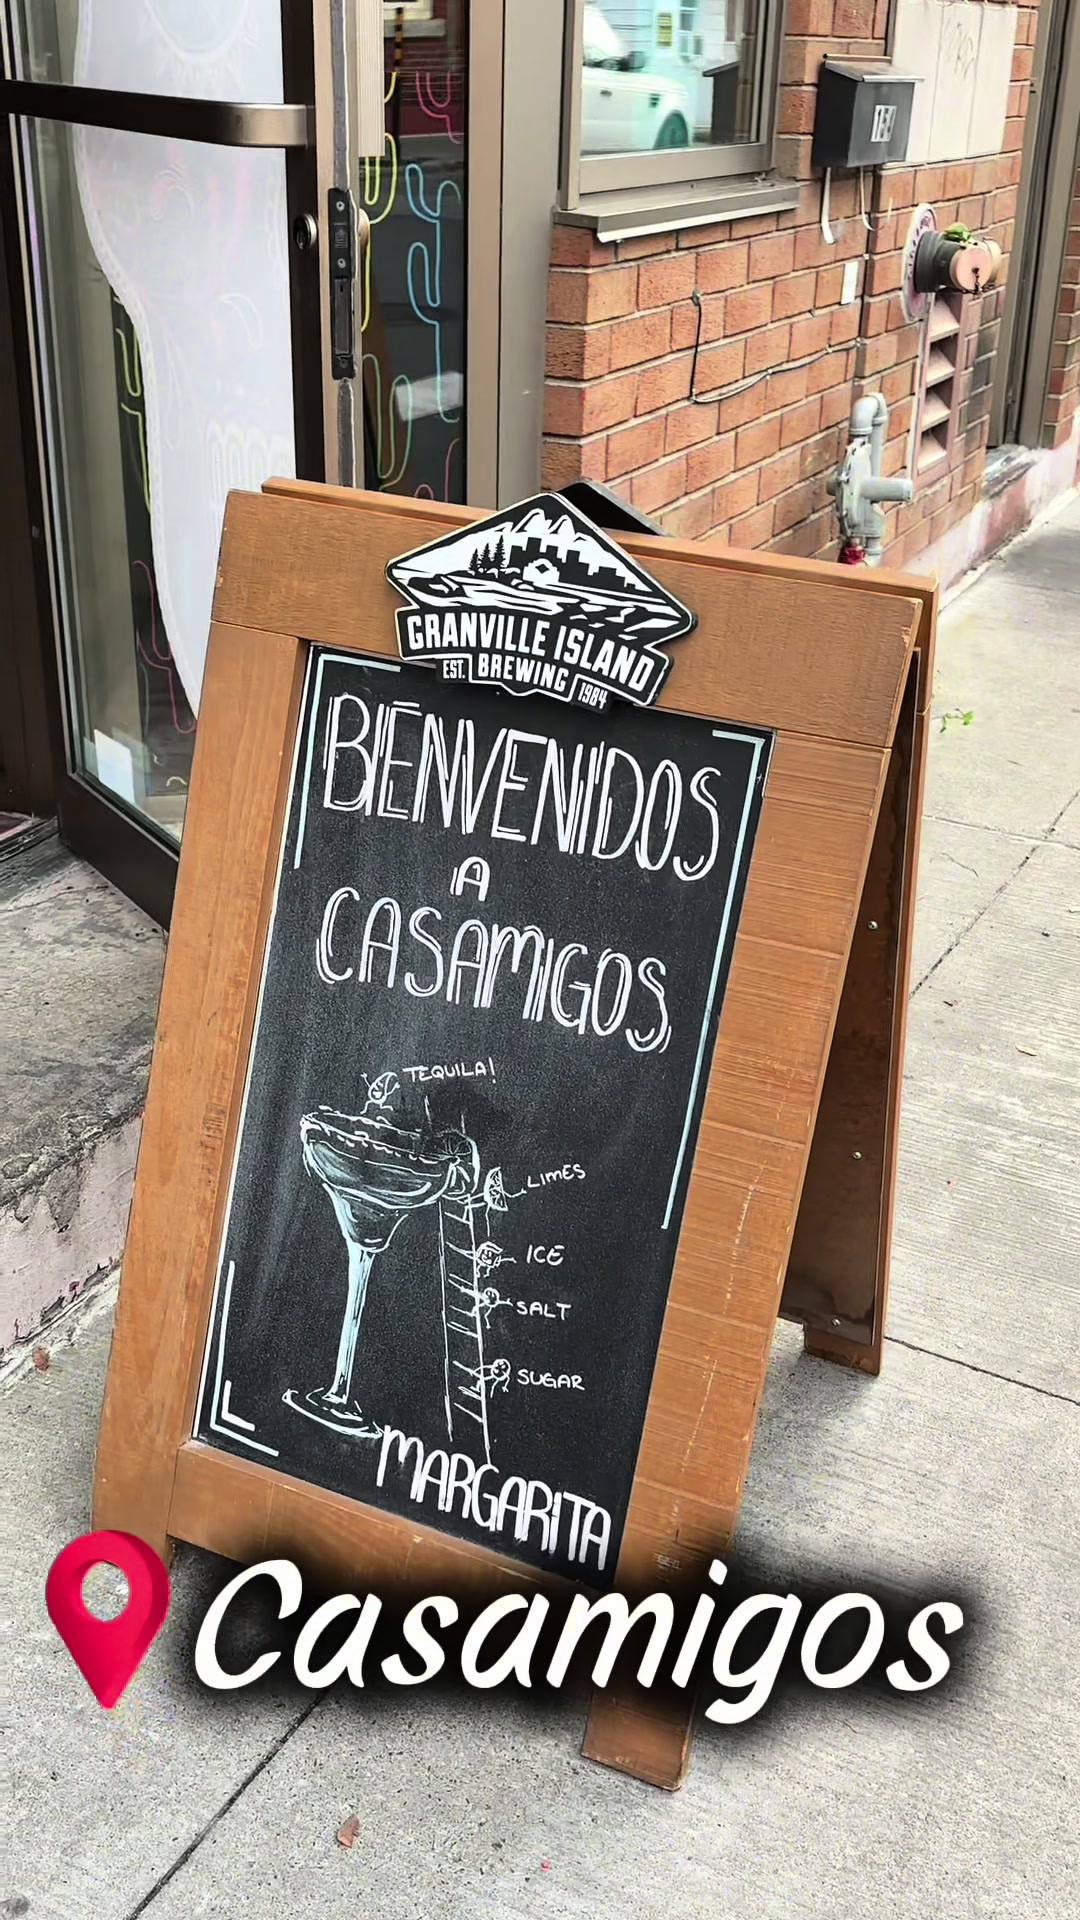 GRANVILLE ISLAND
EST. BREWING 1984
BIENVENIDOS
A
CASAMIGOS
TEQUILA!
LIMES
ICE
SALT
SUGAR
MARGARITA
Casamigos